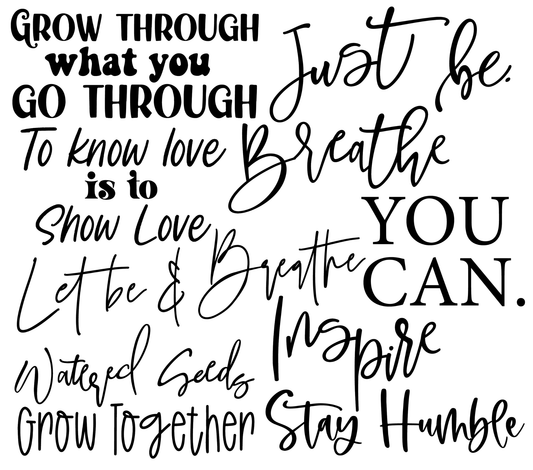 GROW THROUGH
what you
GO THROUGH
To know love
is to
Show Love
Let be & Breathe
Watered Seeds
Grow Together
Just be.
Breathe
YOU
CAN.
Inspire
Stay Humble